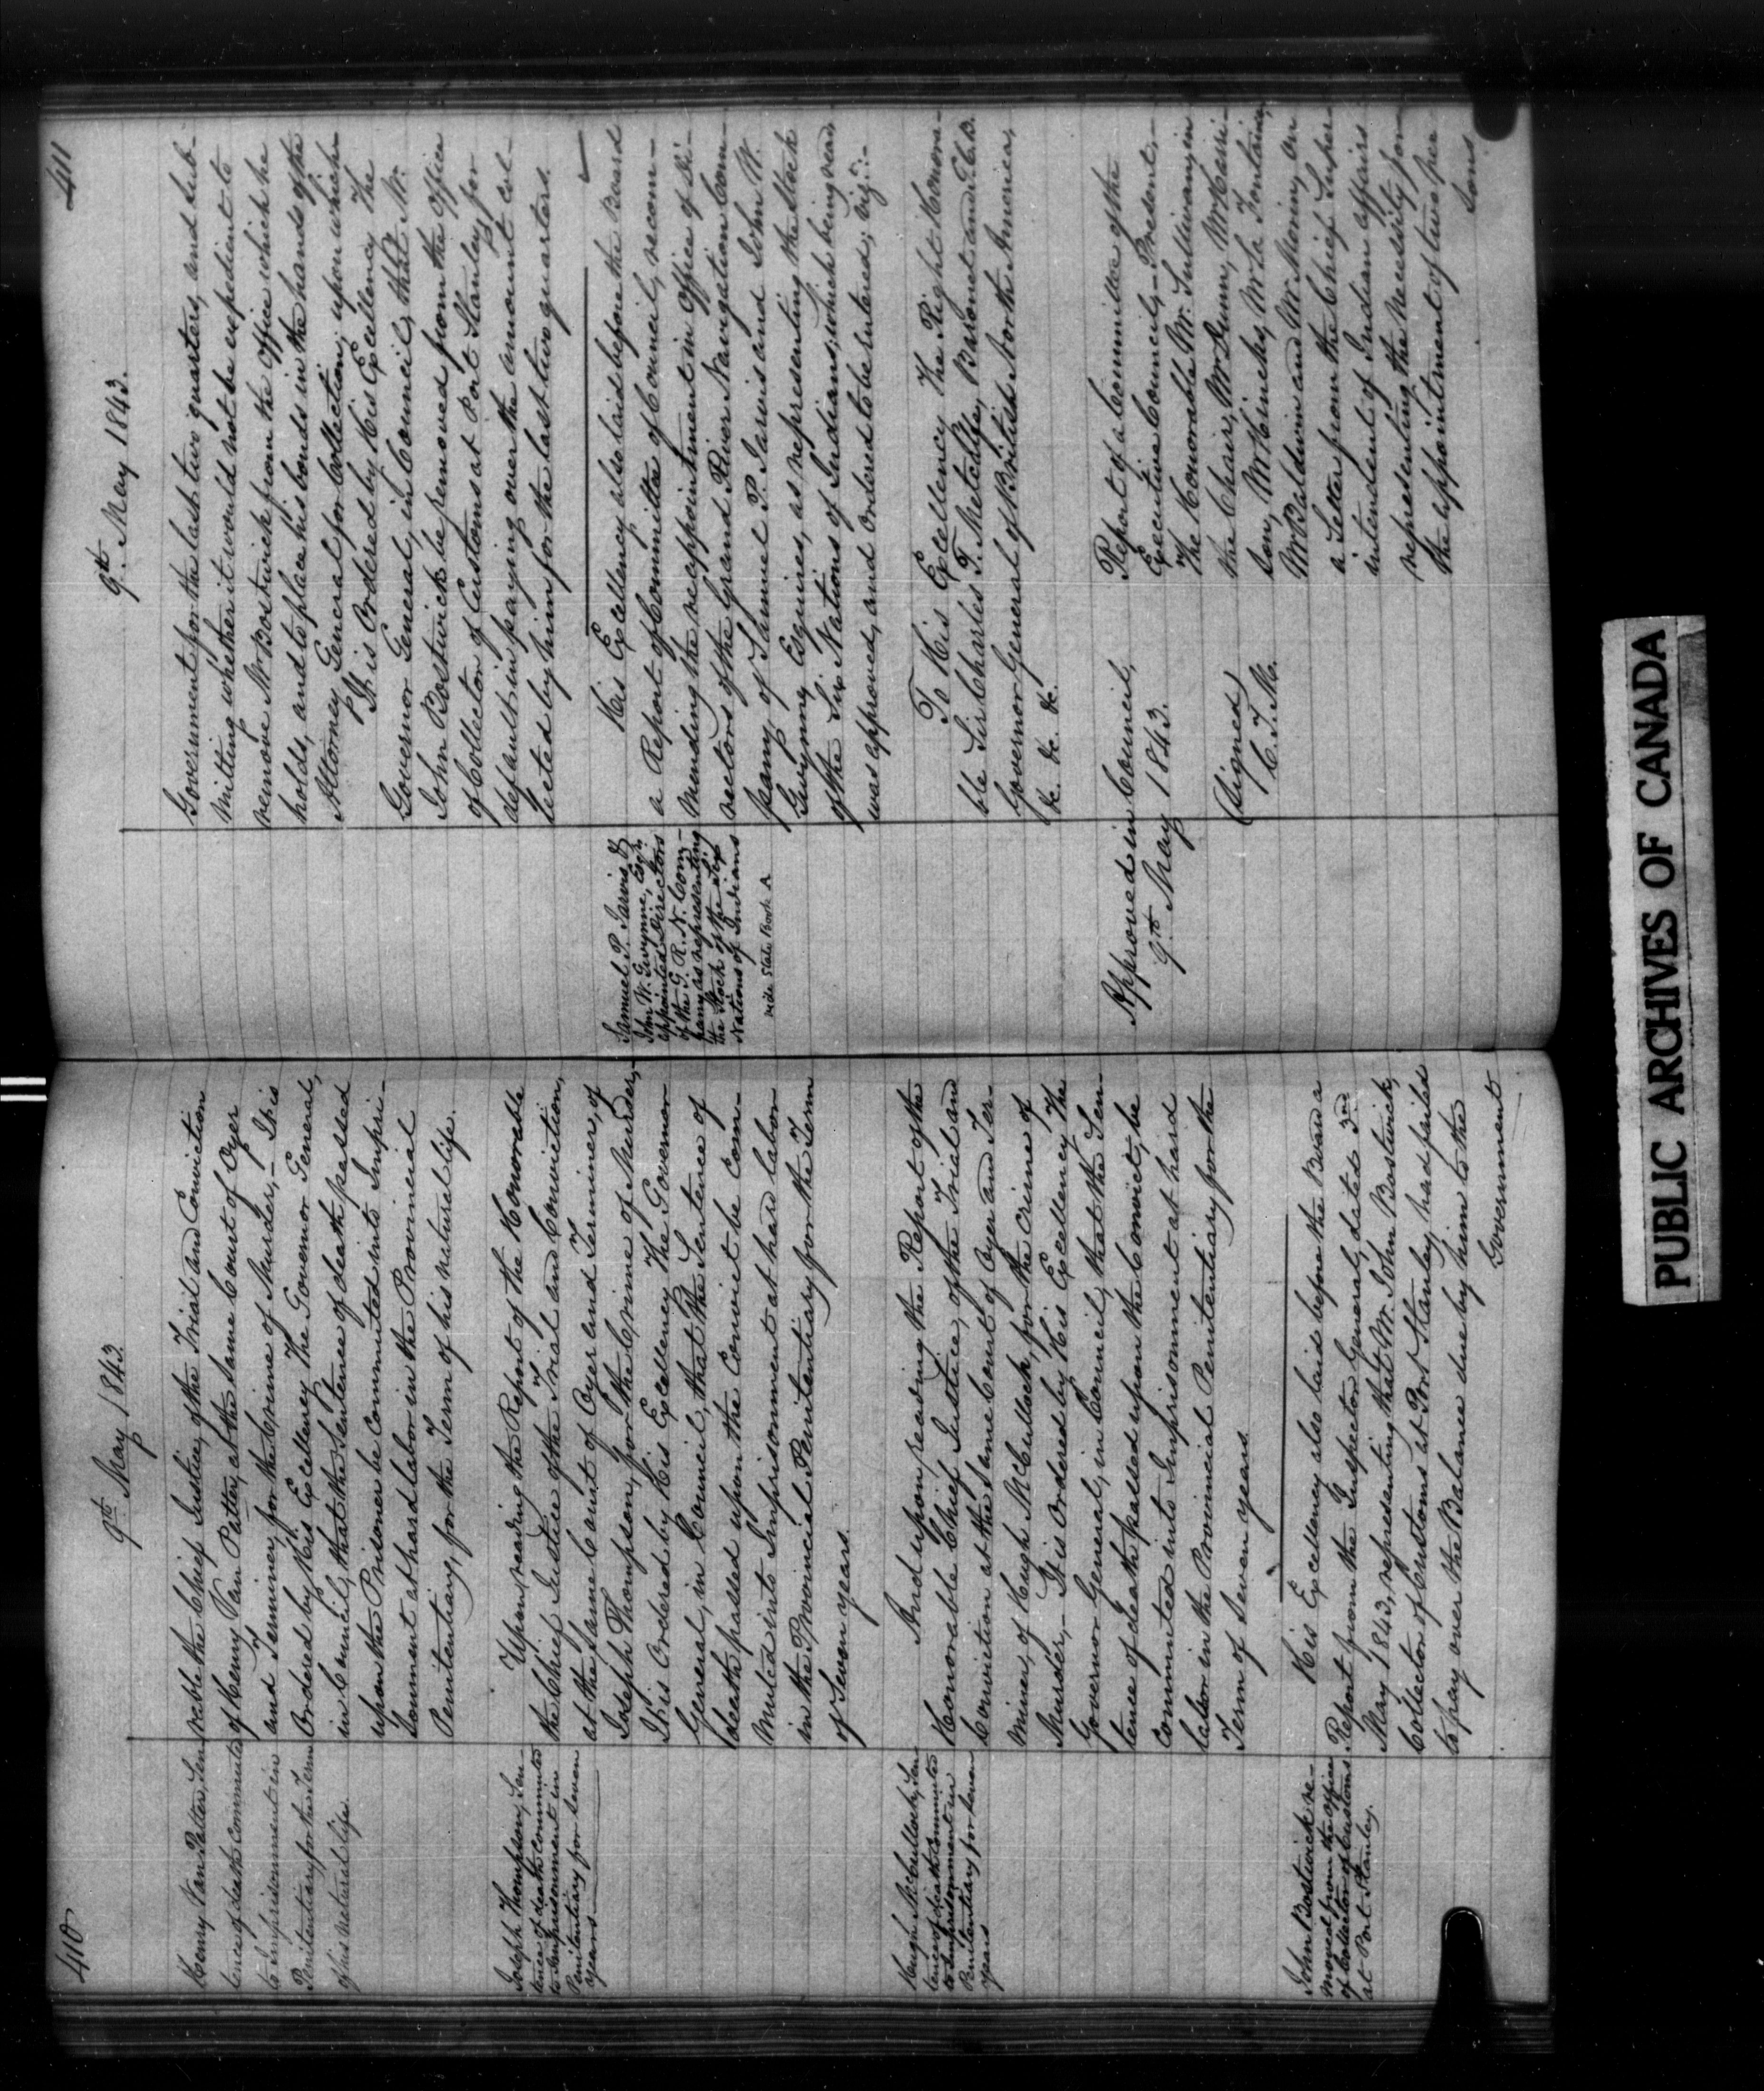 410
9th. May 1843.
Henry Van Patter, Sen-
tence of death commuted
to imprisonment in
Penitentiary, for the Term
of his natural life.
rable the Chief Justice, of the Trial and Conviction
of Henry Van Patter, at the same Court of Oyer
and Terminer, for the Crime of Murder,- It is
Ordered by His Excellency The Governor General,
in Council, that the Sentence of death passed
upon the Prisoner be Commuted into Impri-
sonment at hard labor in the Provincial
Penitentiary, for the Term of his natural life.
Joseph Thompson, Sen-
tence of death Commuted
to imprisonment in
Penitentiary for seven
years
Upon reading the Report of the Honorable
the Chief Justice of the Trial and Conviction,
at the same Court of Oyer and Terminer, of
Joseph Thompson, for the Crime of Murder,-
It is Ordered by His Excellency The Governor
General, in Council, that the Sentence of
death passed upon the Convict be Com-
muted into Imprisonment at hard labor
in the Provincial Penitentiary for the Term
of Seven years.
Hugh McCullock, Sen-
tence of death Commuted
to imprisonment in
Penitentiary for seven
years
And upon reading the Report of the
Honorable Chief Justice, of the Trial and
Conviction at the same Court of Oyer and Ter-
miner, of Hugh McCullock, for the Crime of
Murder,- It is Ordered by His Excellency The
Governor General, in Council, that the Sen-
tence of death passed upon the Convict, be
Commuted into Imprisonment at hard
labor in the Provincial Penitentiary for the
Term of Seven years.
John Bostwick re-
moved from the office
of Collector of Customs
at Port Stanley.
His Excellency also laid before the Board a
Report from the Inspector General, dated 3rd
May 1843, representing that Mr. John Bostwick,
Collector of Customs at Port Stanley, had failed
to pay over the Balance due by him to the
Government
411
9th. May 1843.
Government for the last two quarters, and sub-
mitting whether it would not be expedient to
remove Mr Bostwick from the Office which he
holds, and to place his bonds in the hands of the
Attorney General for Collection; upon which
It is Ordered by His Excellency The
Governor General, in Council, that Mr.
John Bostwick be removed from the Office
of Collector of Customs at Port Stanley, for
default in paying over the amount col-
lected by him for the last two quarters.
Samuel P. Jarvis &
John W. Gwynne, Esqrs.
appointed Directors
of the G. R. N. Com-
pany as representing
the Stock of the Six
Nations of Indians
vide State Book A
His Excellency also laid before the Board
a Report of Committee of Council, recom-
mending the reappointment in Office of Di-
rectors of the Grand River Navigation Com-
pany, of Samuel P. Jarvis and John W.
Gwynne, Esquires, as representing the Stock
of the Six Nations of Indians; which being read,
was approved, and Ordered to be Entered; viz:-
To His Excellency The Right Honora-
ble Sir Charles T. Metcalfe, Baronet and G.C.B.
Governor General of British North America,
&c. &c. &c.
Approved in Council,
9th May 1843.
(Signed)
C. T. M.
Report of a Committee of the
Executive Council,- Present,-
The Honorable Mr. Sullivan, in
the Chair, Mr Dunn, Mr Harri-
son, Mr Hincks, Mr La Fontaine,
Mr Baldwin and Mr. Morin, on
a Letter from the Chief Super
intendent of Indian affairs
representing the necessity for
the appointment of two per
sons
PUBLIC ARCHIVES OF CANADA